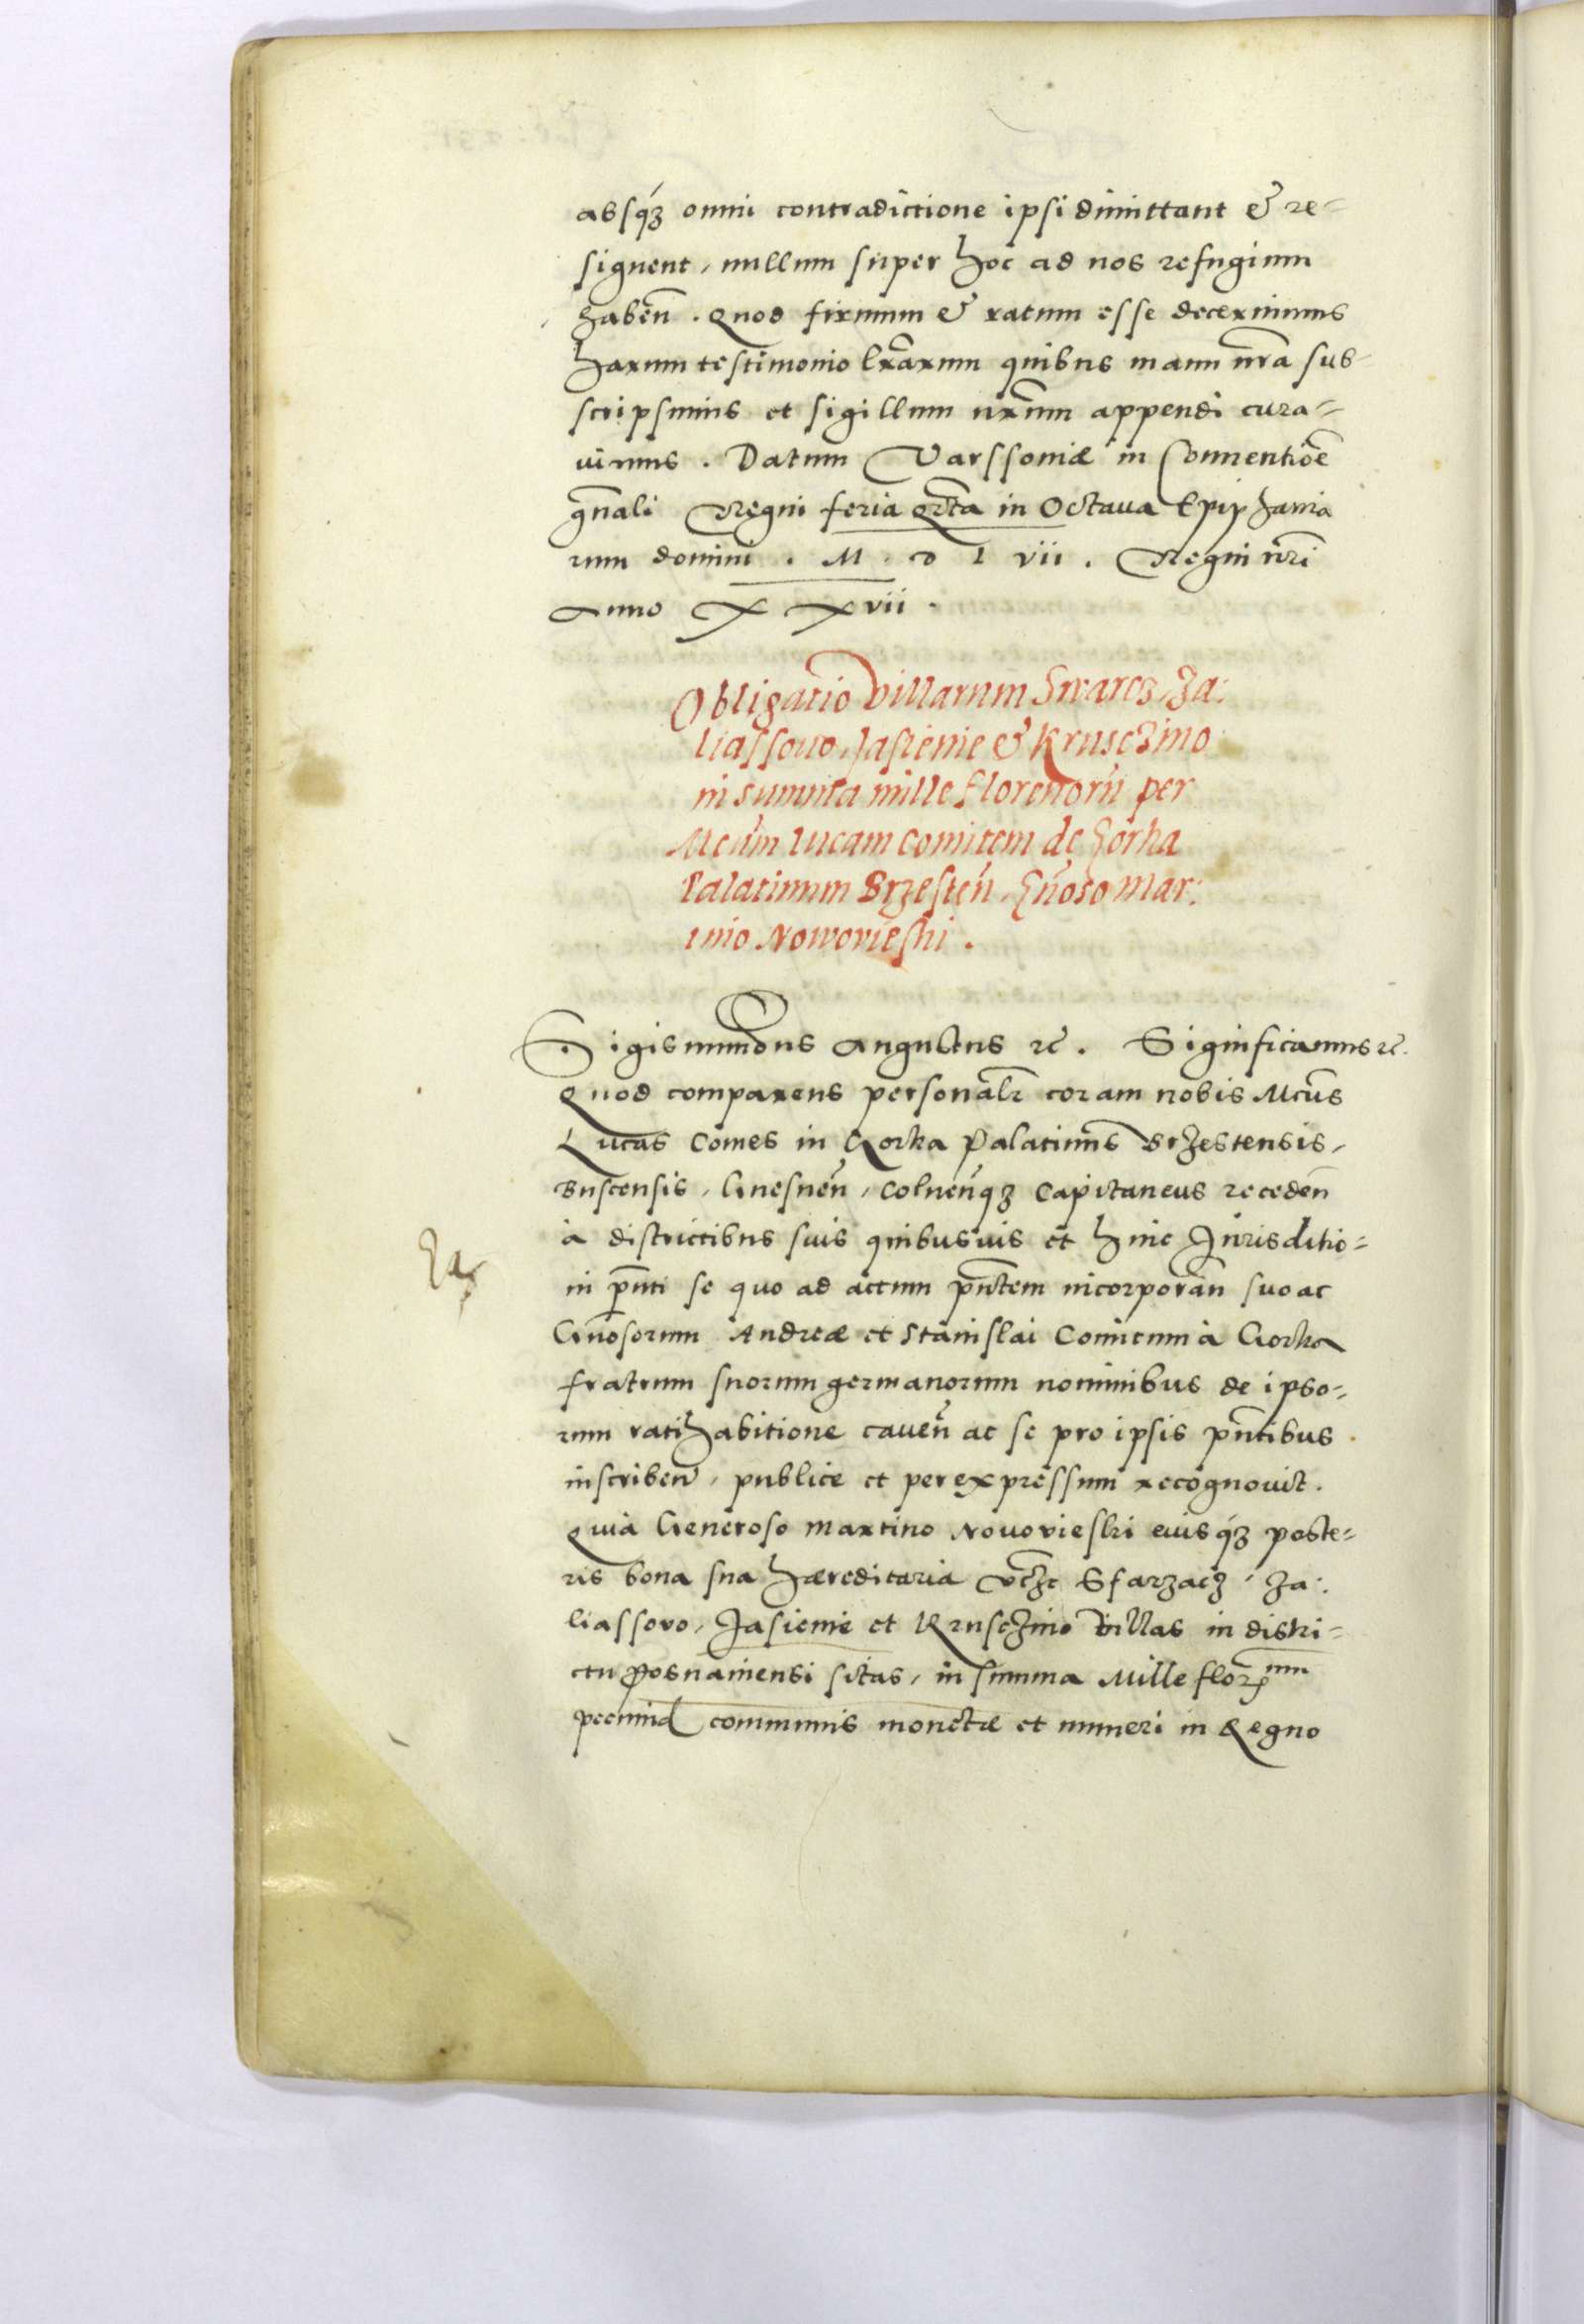 absq́ꝫ omni contradictione ipsi dimittant & re=
signent, nullum super hoc ad nos refugium
habeñ. Quod firmum & ratum esse decernimus
harum testimonio lr̃arum quibus manu nr̃a sub=
scripsimus et sigillum nr̃um appendi cura=
uimus. Datum Varssoniæ in Conuentiõe
gñali Regni feria qr̃ta in Octaua Epiphania
rum domini. M. D L vii. Regni nr̃i
Anno X X vii.
Obligatio villarum Swarcz, Za:
liassowo, Jasienie & Krusczino
in summa mille florenorũ per
Mcũm Lucam Comitem de Gorka
Palatinum Brzesteñ, Gñoso Mar:
tino Nowovieski.
Sigismundus Augustus ꝛc̃. Significamus ꝛc̃.
Quod comparens personalr̃ coram nobis Mcũs
Lucas Comes in Gorka Palatinus Brzestensis,
Buscensis, Gnesneñ, Colneñqꝫ Capitaneus recedeñ
à districtibus suis quibusuis et huic Jurisditio=
ni pñti se quo ad actum pñtem incorporañ suo ac
Gñosorum Andreæ et Stanislai Comitum à Gorka
fratrum suorum germanorum nominibus de ipso=
rum ratihabitione caueñ ac se pro ipsis pñtibus
inscribeñ, publice et per expressum recognouit.
Quia Generoso Martino Novovieski eiusq́ꝫ poste=
ris bona sua hæreditaria Sfarzacz, Za:
liassovo, Jasienie et Krusczino villas in distri=
ctu Posnaniensi sitas, in summa Mille florꝝnum
pecuniæ communis monetæ et numeri in Regno